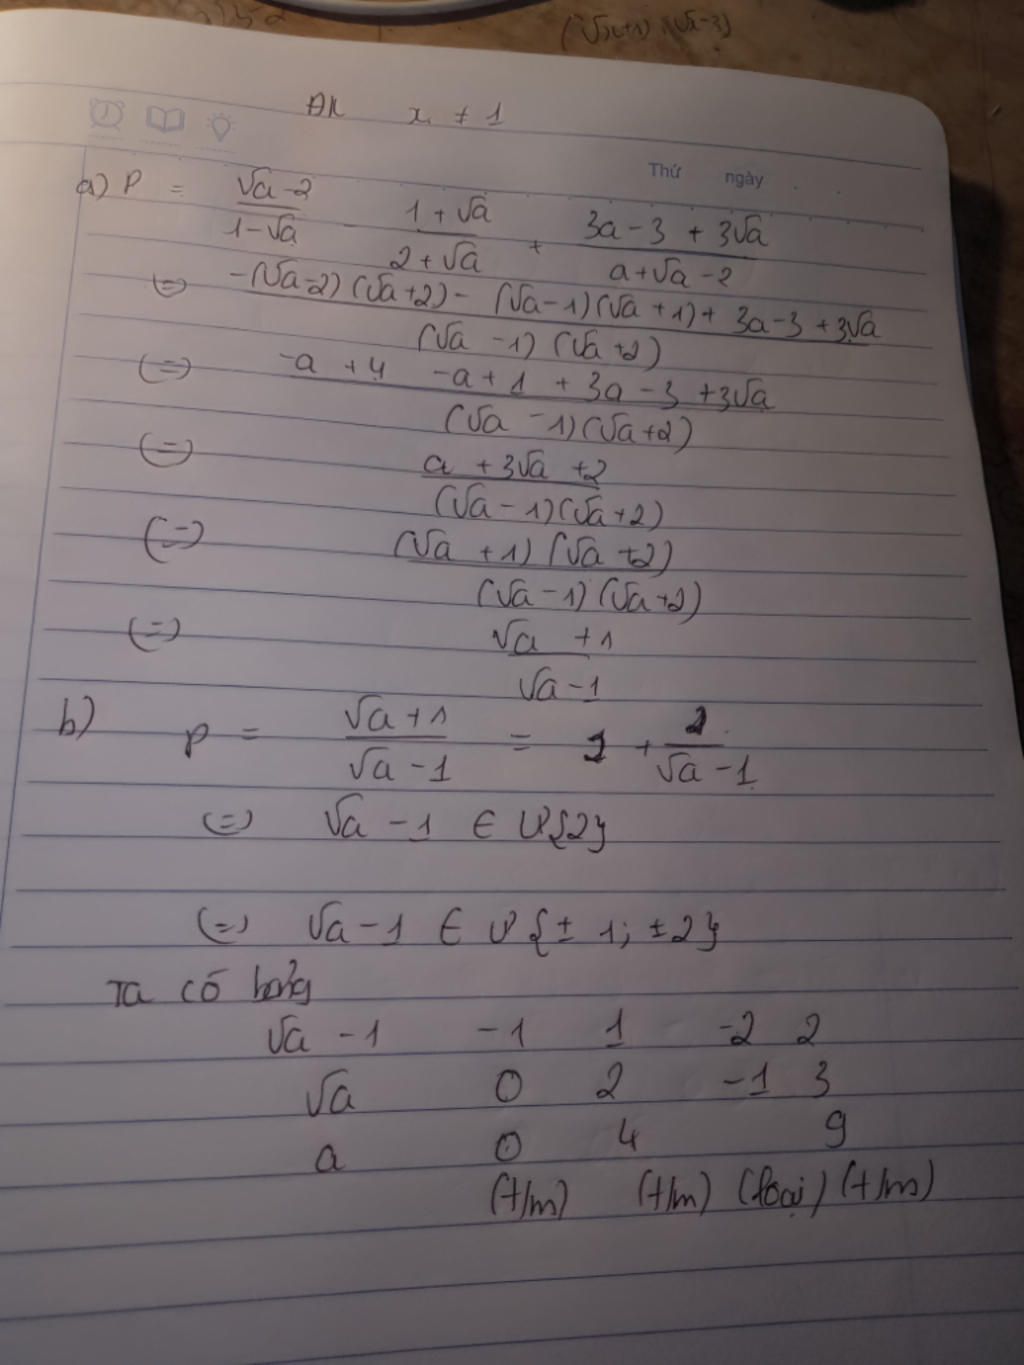 (√x+1)(√x-3)
ĐK x ≠ 1
Thứ ngày
a) P = (√a - 2)/(1 - √a) - (1 + √a)/(2 + √a) + (3a - 3 + 3√a)/(a + √a - 2)
(=) (-(√a - 2)(√a + 2) - (√a - 1)(√a + 1) + 3a - 3 + 3√a)/((√a - 1)(√a + 2))
(=) (-a + 4 - a + 1 + 3a - 3 + 3√a)/((√a - 1)(√a + 2))
(=) (a + 3√a + 2)/((√a - 1)(√a + 2))
(=) ((√a + 1)(√a + 2))/((√a - 1)(√a + 2))
(=) (√a + 1)/(√a - 1)
b) P = (√a + 1)/(√a - 1) = 1 + 2/(√a - 1)
(=) √a - 1 ∈ Ư{2}
(=) √a - 1 ∈ Ư{± 1; ±2}
Ta có bảng
√a - 1 -1 1 -2 2
√a 0 2 -1 3
a 0 4 9
(t/m) (t/m) (loại) (t/m)